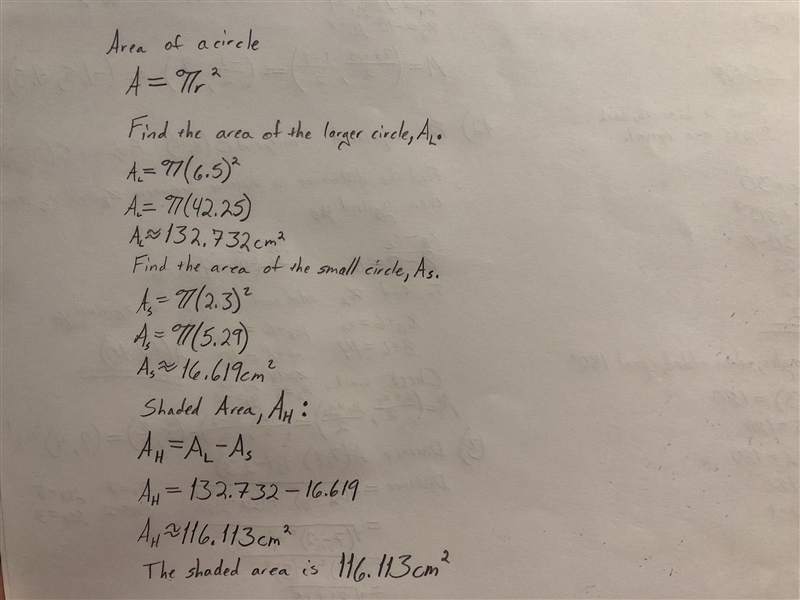 Area of a circle
A = πr²
Find the area of the larger circle, A_L.
A_L = π(6.5)²
A_L = π(42.25)
A_L ≈ 132.732 cm²
Find the area of the small circle, A_S.
A_S = π(2.3)²
A_S = π(5.29)
A_S ≈ 16.619 cm²
Shaded Area, A_H:
A_H = A_L - A_S
A_H = 132.732 - 16.619
A_H ≈ 116.113 cm²
The shaded area is 116.113 cm²